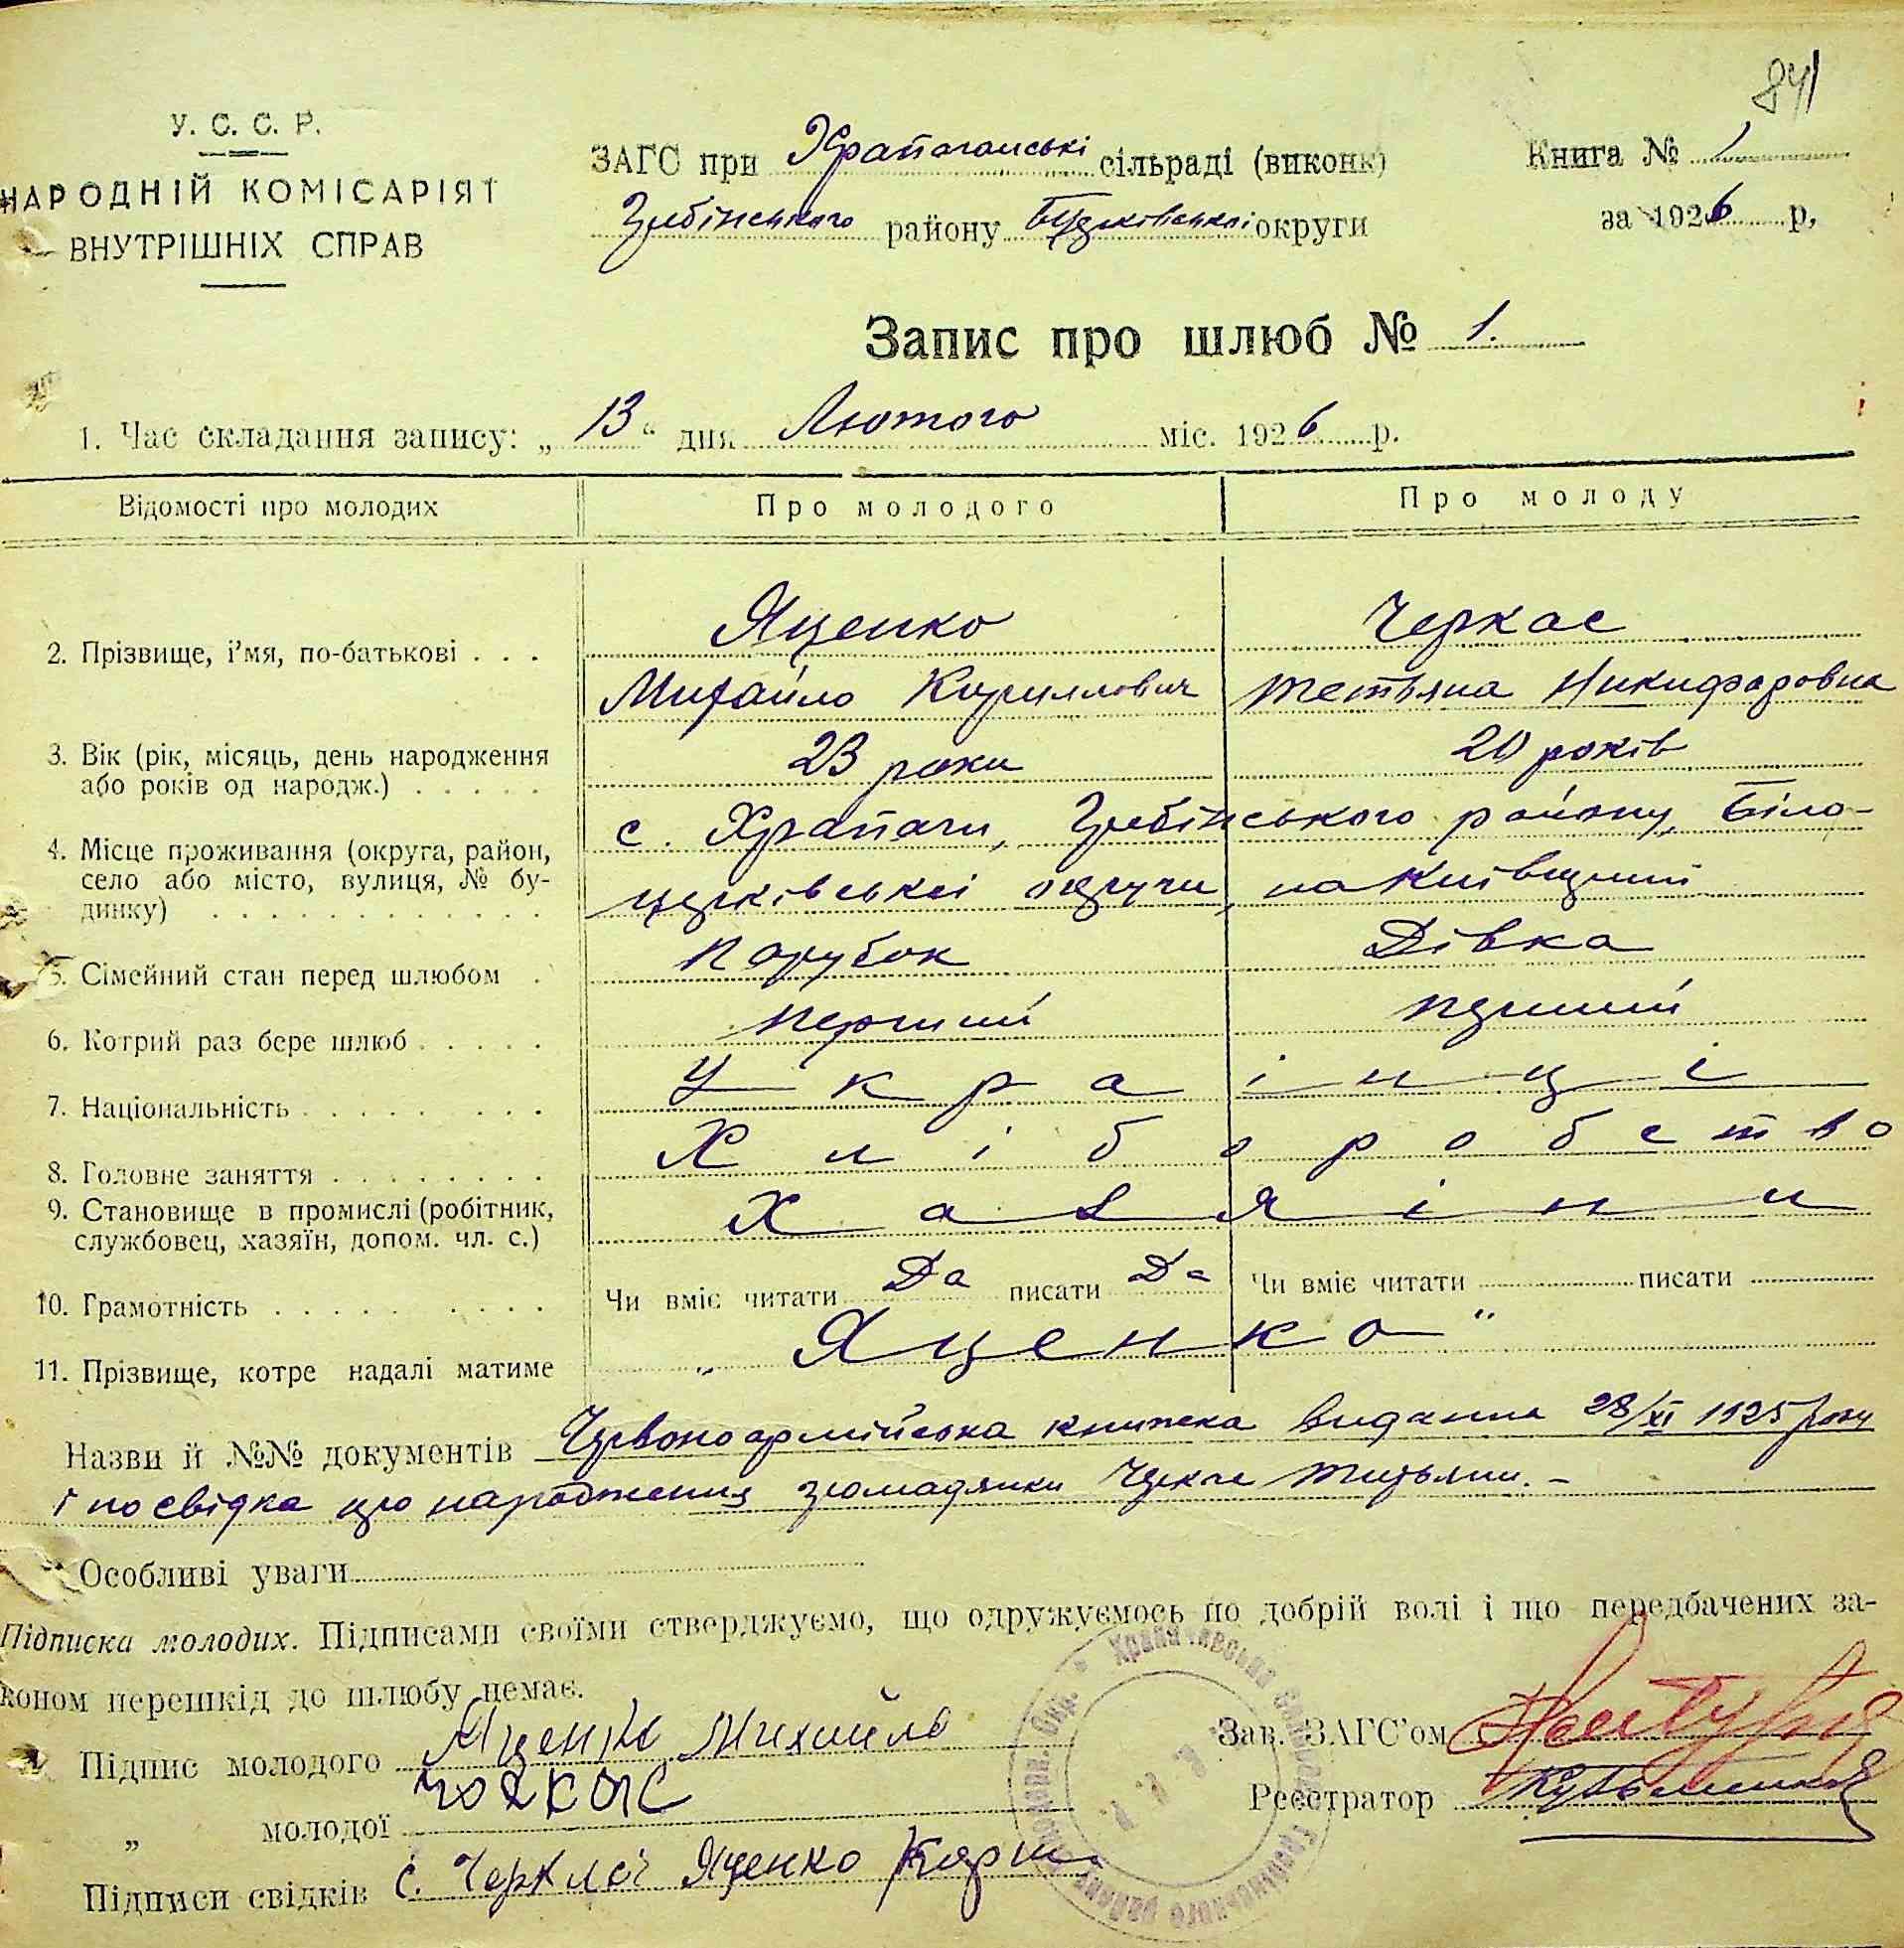 841
У. С. С. Р.
НАРОДНІЙ КОМІСАРІЯТ
ВНУТРІШНІХ СПРАВ
ЗАГС при Храпачанські сільраді (виконк)
Гребінського району Б.церківської округи
Книга № 1
за 1926 р,
Запис про шлюб № 1.
1. Час складання запису: „ 13 “ дня Лютого міс. 1926 р.
Відомості про молодих Про молодого Про молоду
2. Прізвище, і’мя, по-батькові . . . Яценко Черкас
Михайло Кириллович Тетьяна Никифоровна
3. Вік (рік, місяць, день народження 23 роки 20 років
або років од народж.) . . . . .
4. Місце проживання (округа, район, с. Храпачи, Гребінського району, Біло-
село або місто, вулиця, № бу- церківської округи, на Київщині
динку) . . . . . . . . . . . .
5. Сімейний стан перед шлюбом . Парубок Дівка
6. Котрий раз бере шлюб . . . . . перший перший
7. Національність . . . . . . . . Українці
8. Головне заняття . . . . . . . . Хліборобство
9. Становище в промислі (робітник, Хазяіни
службовец, хазяїн, допом. чл. с.)
10. Грамотність . . . . . . . . . Чи вміє читати Да писати Да Чи вміє читати писати
11. Прізвище, котре надалі матиме „Яценко“
Назви й №№ документів Червоноармійська книжка видання 28/XI 1925 року
і посвідка про народження громадянки Черкас
Особливі уваги
Підписка молодих. Підписами своїми стверджуємо, що одружуємось по добрій волі і що передбачених за-
коном перешкід до шлюбу немає.
Підпис молодого Яценко Михайло
„ молодої
Підписи свідків С. Яценко
Зав. ЗАГС’ом
Реєстратор